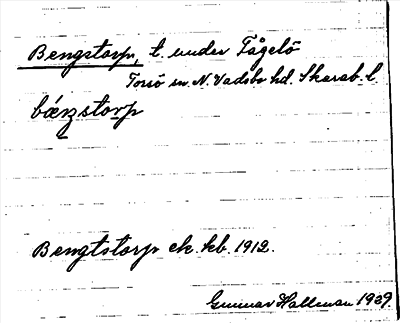 Bengstorp, t. under Fågelö
Torsö sn. N. Vadsbo hd. Skarab. l.
bæŋstorp
Bengtstorp ek. kb. 1912.
Gunnar Hallman 1939